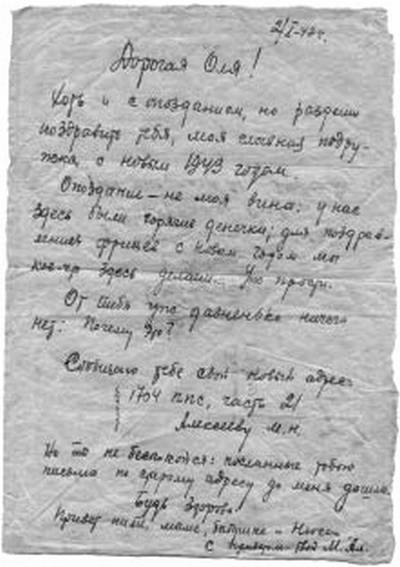 2/I-43 г.
Дорогая Оля!
Хоть и с опозданием, но разреши
поздравить тебя, моя славная подру-
жка, с новым 1943 годом.
Опоздание – не моя вина: у нас
здесь были горячие денечки; для поздрав-
ления фрицев с новым годом мы
кое-что здесь делали...
От тебя что-то давненько ничего
нет: Почему это?
Сообщаю тебе свой новый адрес
1704 ппс, часть 21
Алексееву М.Н.
Но ты не беспокойся: посланные тобою
письма по старому адресу до меня дошли.
Будь здорова.
Привет папе, маме, бабушке –
С приветом твой М. Ал.